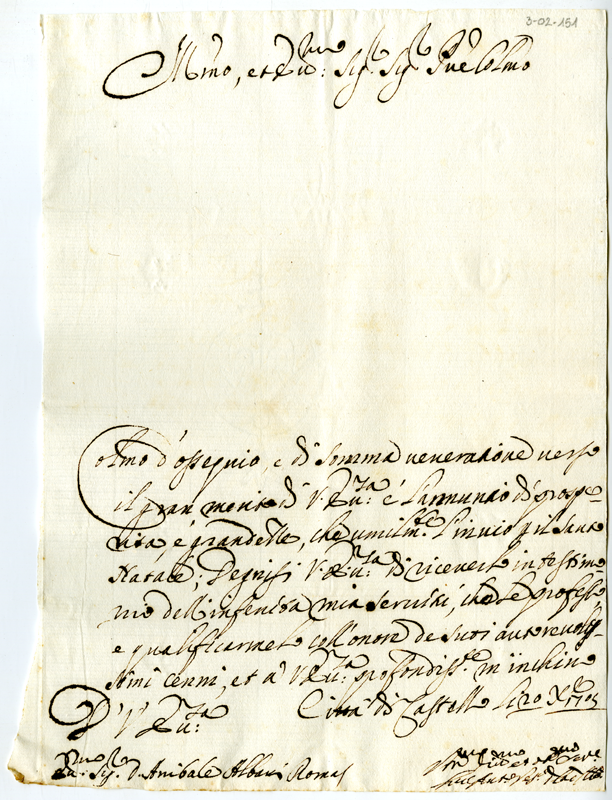 3-02-151
Illmo, et Rmo: Sig.r Sig.r Prne Colmo
Colmo d'ossequio, e di somma veneratione verso
il gran merito di V. S. Illma: è l'annuntio di prospe-
rità, e grandezze, che umilmte: l'invio p il Santo
Natale; Degnisi V. S. Illma: di riceverlo in testimo
nio dell'infinita mia servitù, che le professo
e qualificarmelo coll'onore de suoi autorevolis-
simi cenni, et a' V. S. Illma: profondisse: m'inchino
D' V. S. Illma: Città di Castello li 20 Xbre 1705
Sig.r d. Anibale Albani Roma